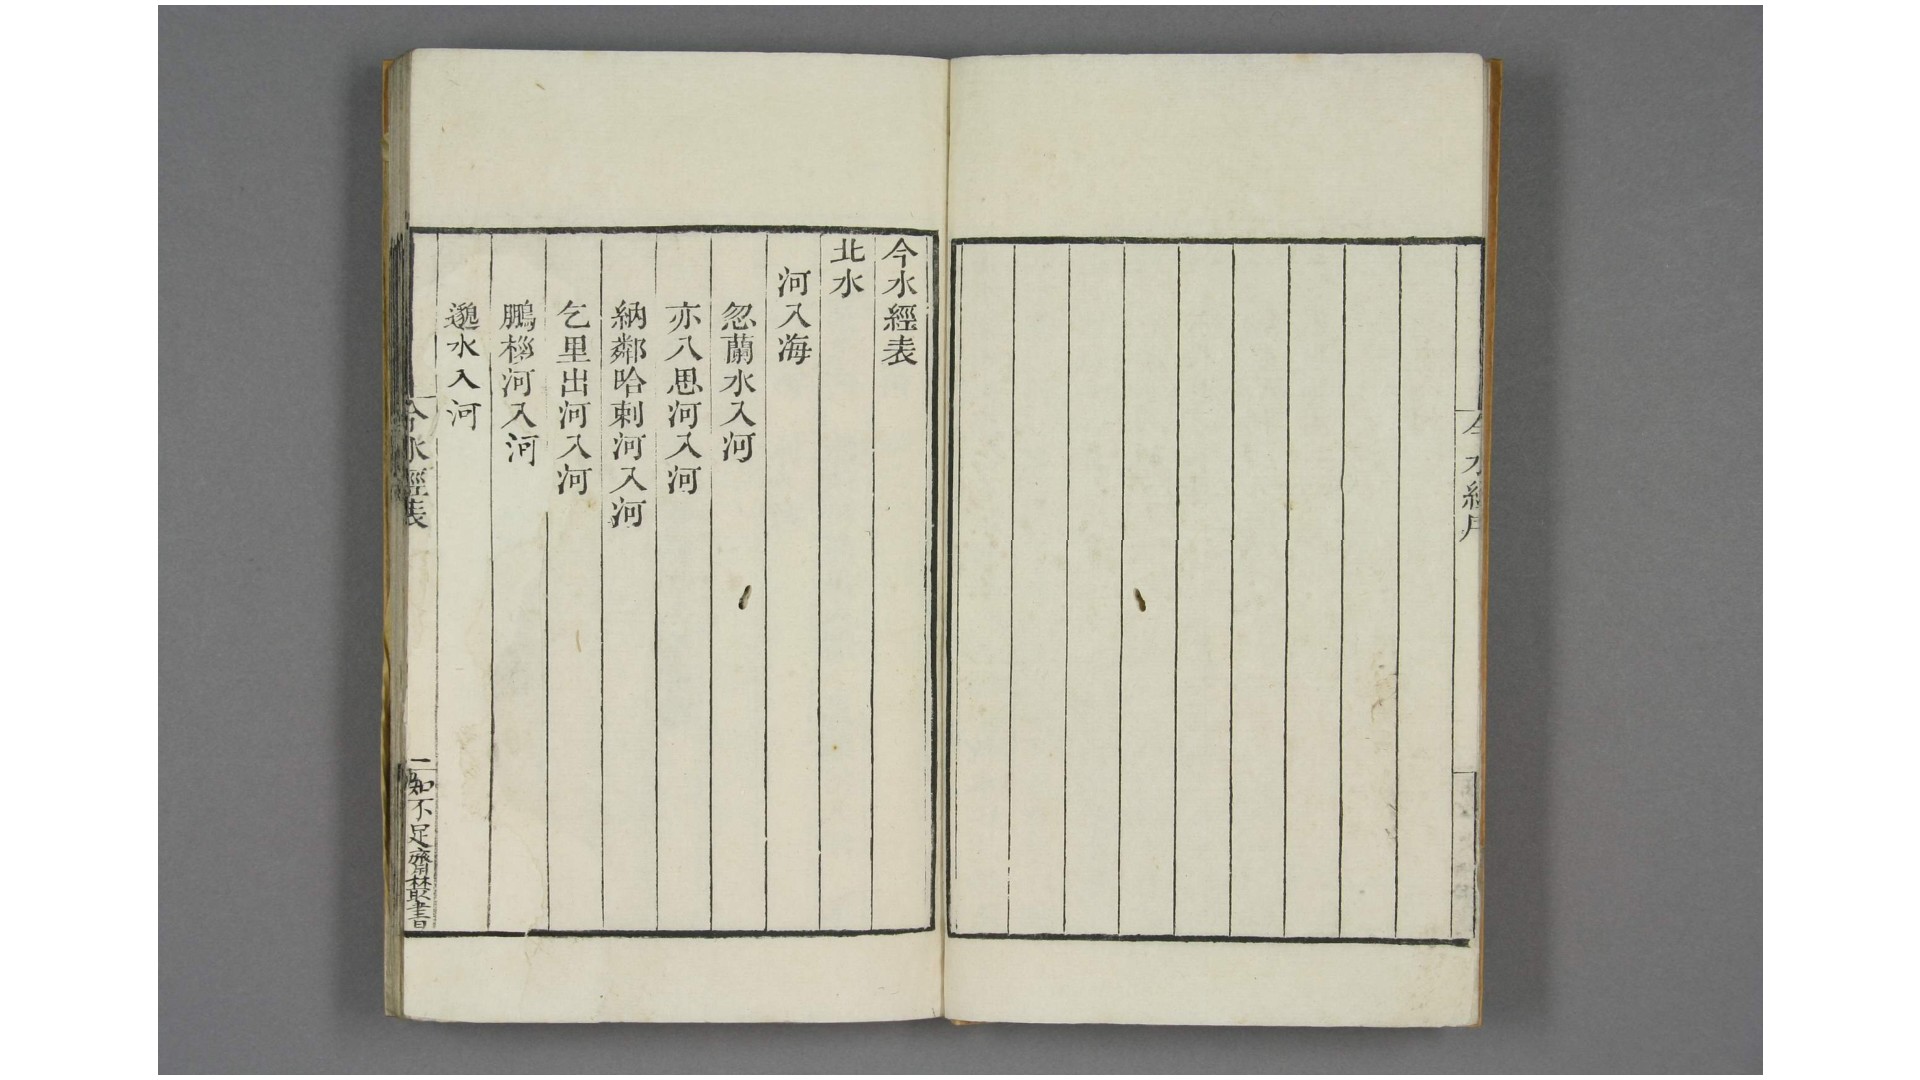 今水經序
今水經表
北水
河入海
忽蘭水入河
亦八思河入河
納鄰哈剌河入河
乞里出河入河
鵬桚河入河
邈水入河
今水經表
一
知不足齋叢書